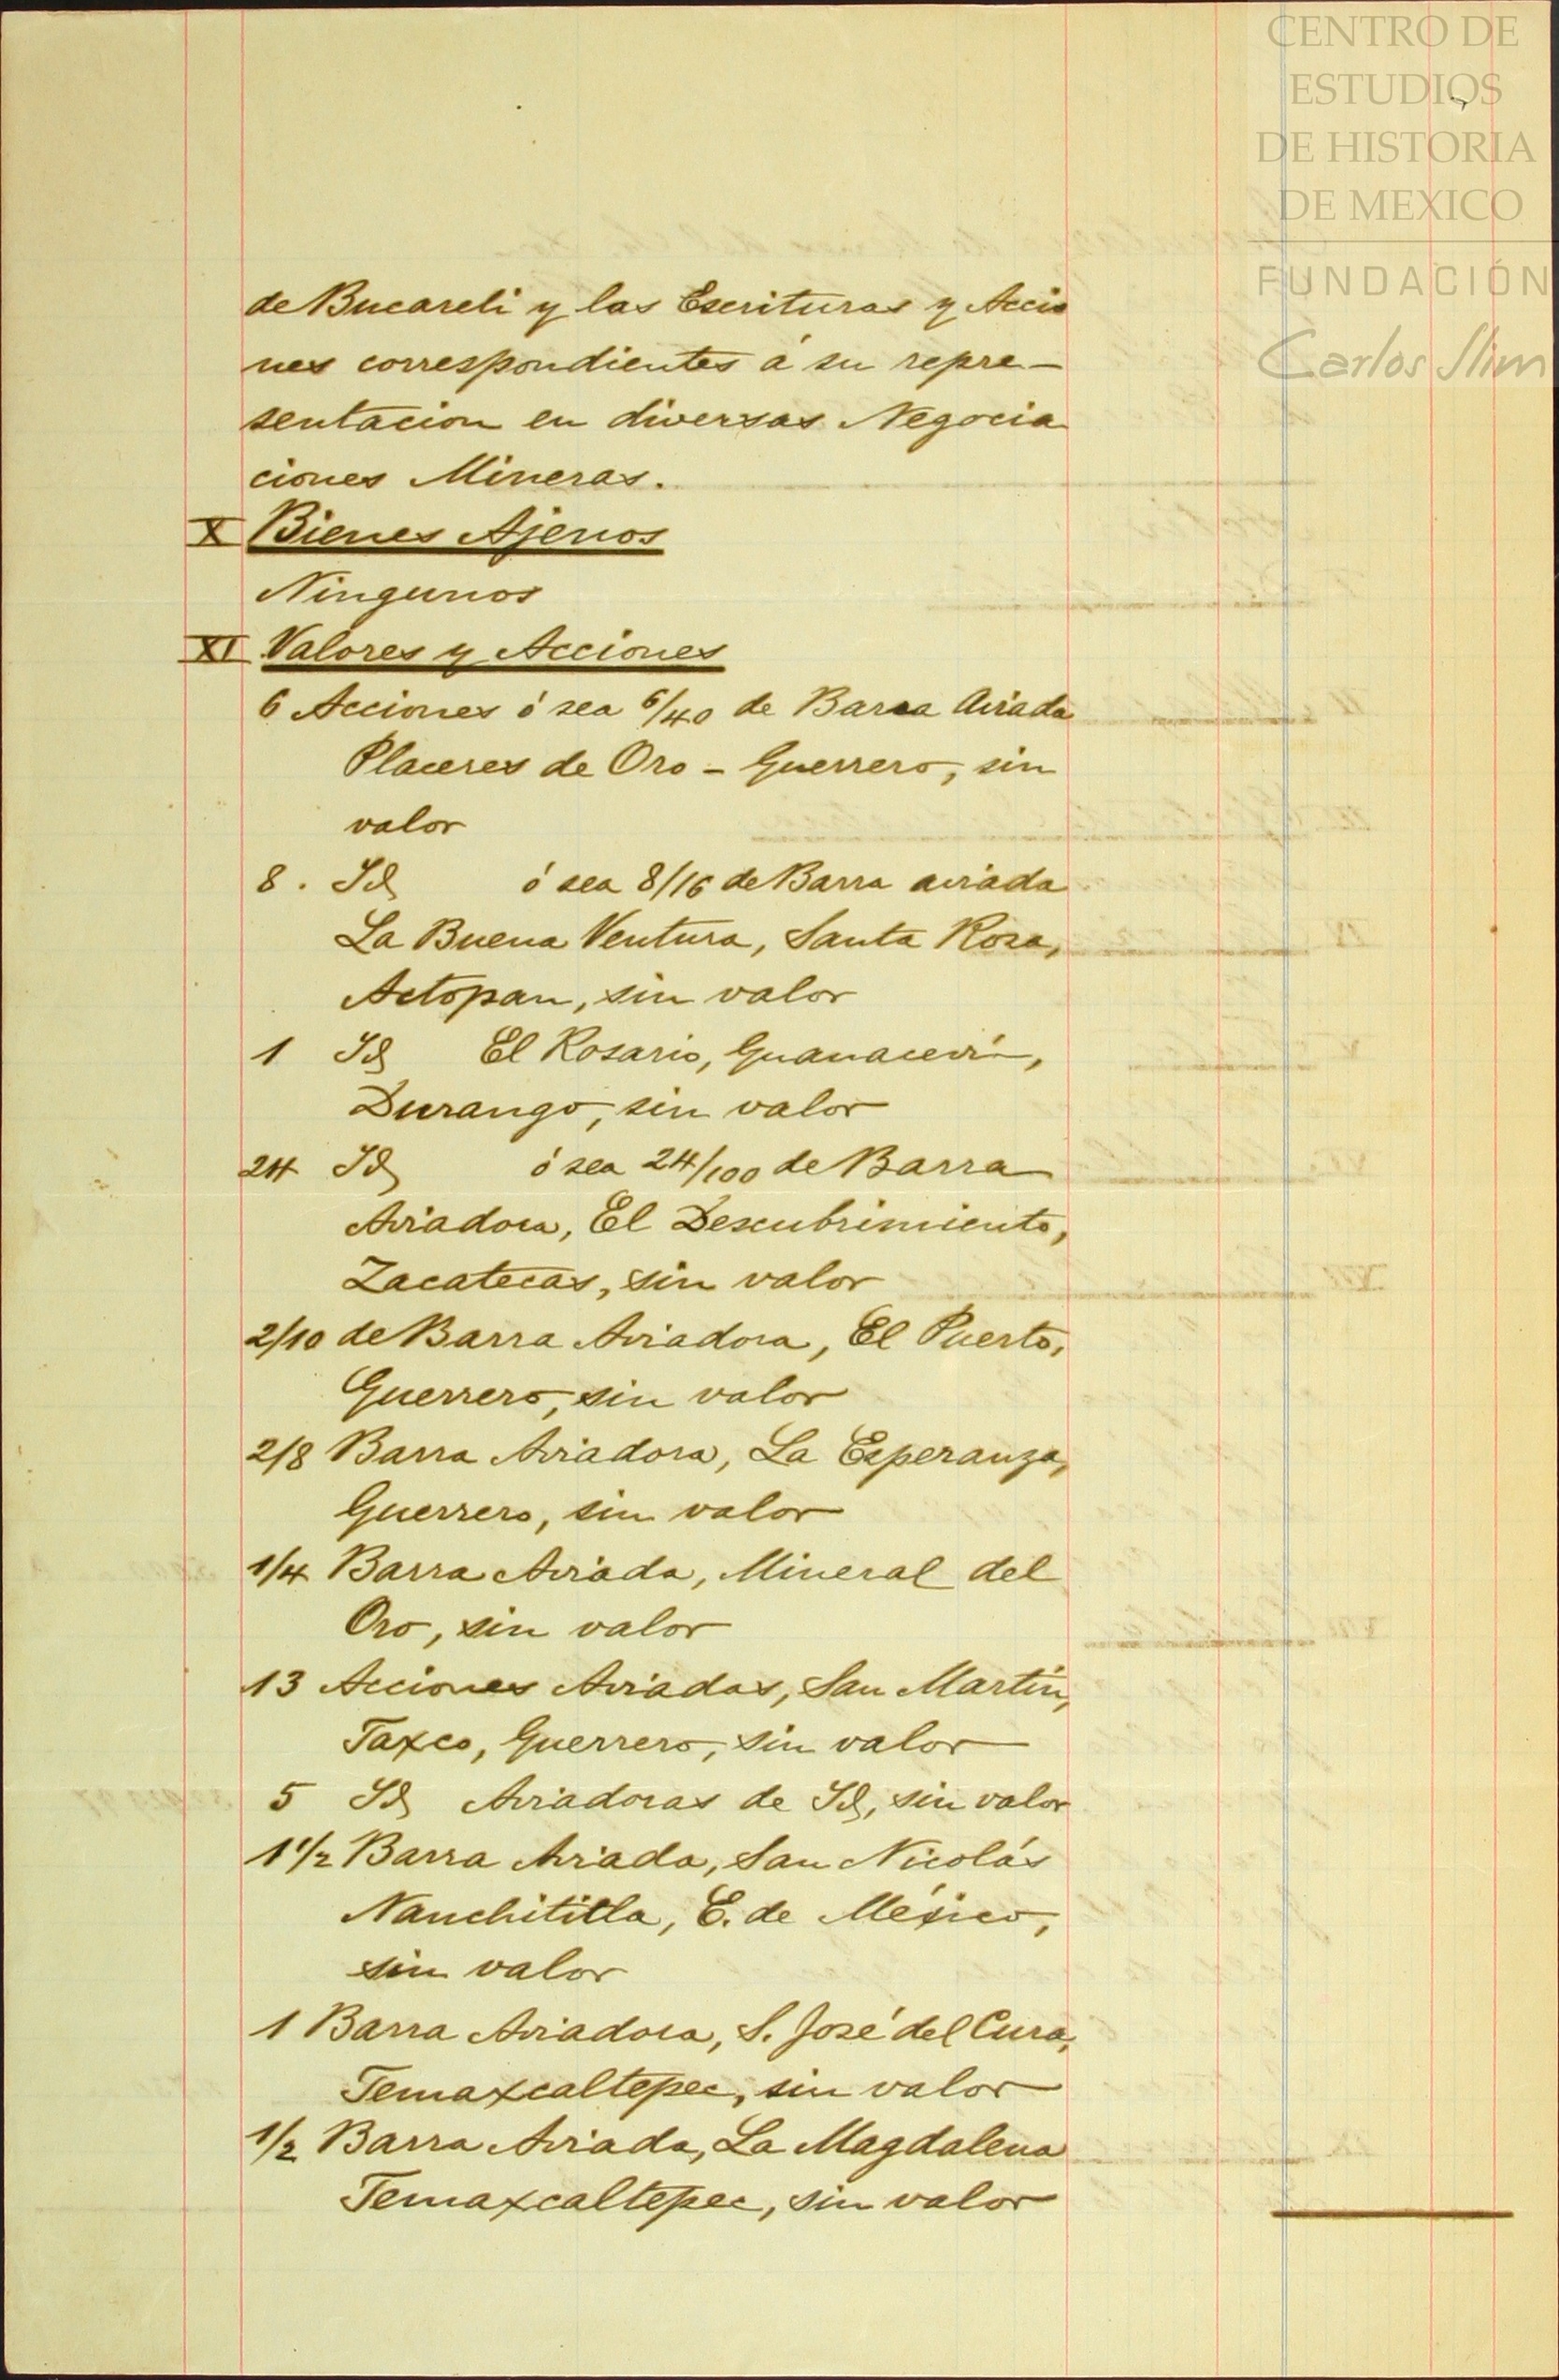 CENTRO DE
ESTUDIOS
DE HISTORIA
DE MEXICO
FUNDACIÓN
Carlos Slim
de Bucareli y las Escrituras y Accio
nes correspondientes á su repre-
sentacion en diversas Negocia
ciones Mineras.
X Bienes Ajenos
Ningunos
XI Valores y Acciones
6 Acciones ó sea 6/40 de Barra Aviada
Placeres de Oro - Guerrero, sin
valor
8 . Id ó sea 8/16 de Barra aviada
La Buena Ventura, Santa Rosa,
Actopan, sin valor
1 Id El Rosario, Guanaceví,
Durango, sin valor
24 Id ó sea 24/100 de Barra
Aviadora, El Descubrimiento,
Zacatecas, sin valor
2/10 de Barra Aviadora, El Puerto,
Guerrero, sin valor
2/8 Barra Aviadora, La Esperanza,
Guerrero, sin valor
1/4 Barra Aviada, Mineral del
Oro, sin valor
13 Acciones Aviadas, San Martin,
Taxco, Guerrero, sin valor
5 Id Aviadoras de Id, sin valor
1 1/2 Barra Aviada, San Nicolás
Nanchititla, E. de México,
sin valor
1 Barra Aviadora, S. José del Cura,
Temaxcaltepec, sin valor
1/2 Barra Aviada, La Magdalena
Temaxcaltepec, sin valor